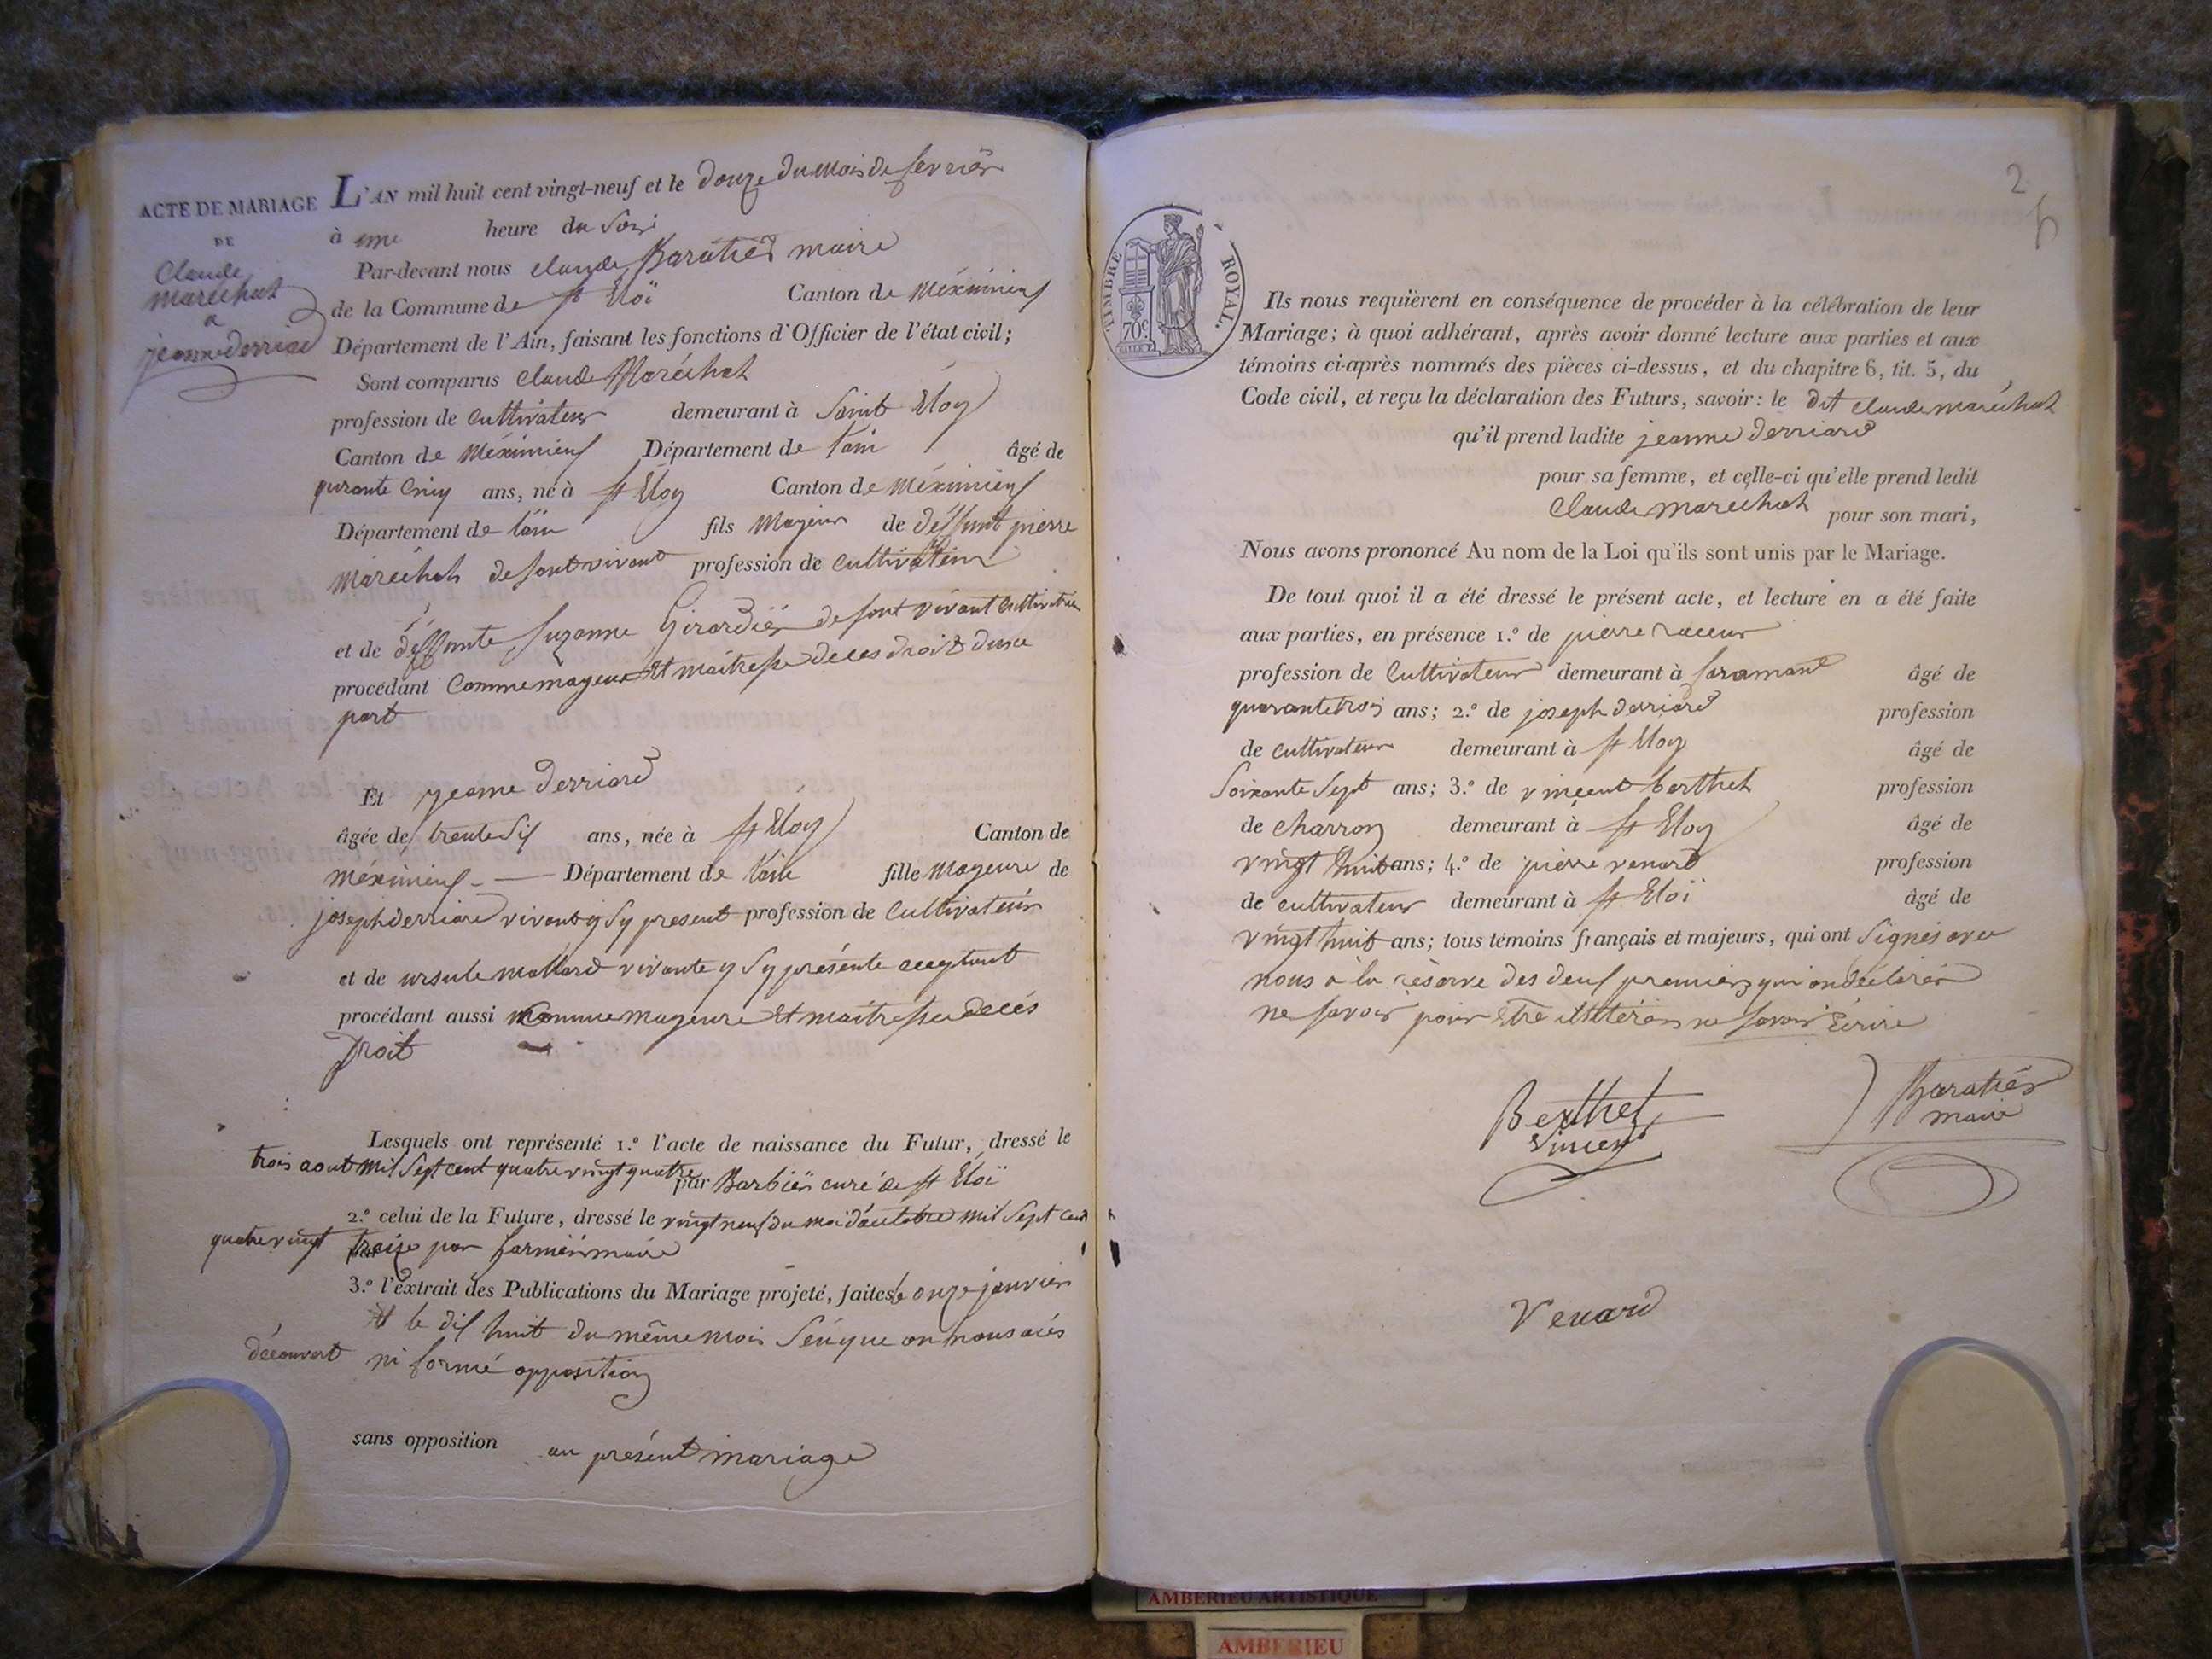 ACTE DE MARIAGE
DE
Claude
maréchat
a
jeanne derriard
L'AN mil huit cent vingt-neuf et le douze du mois de fevrier
à une heure du Soir
Par-devant nous claude Baratier maire
de la Commune de st Eloï Canton de Méximieux
Département de l'Ain, faisant les fonctions d'Officier de l'état civil;
Sont comparus Claude Maréchat
profession de cultivateur demeurant à Saint Eloy
Canton de Méximieux Département de lain âgé de
qurante cinq ans, né à st Eloy Canton de Méximieux
Département de lain fils Mageur de déffunt pierre
Maréchat de sont vivant profession de cultivateur
et de déffunte Suzanne Girardier de sont vivant cultivatrice
procédant Comme mageur et maitresse de ces droit dune
part
Et jeanne derriard
âgée de trente six ans, née à st Eloy Canton de
méximieux Département de lain fille Mageure de
joseph derriard vivant y Sy present profession de Cultivateur
et de ursule mallard vivante y Sy présente acceptant
procédant aussi Comme mageure et maitresse de cés
Droit
Lesquels ont représenté 1.º l'acte de naissance du Futur, dressé le
trois aout mil Sept cent quatre vingt quatre par Barbier curé de st Eloï
2.º celui de la Future, dressé le vingt neuf du moi d'auctobre mil Sept cent
quatre vingt treize par farmier maire
3.º l'extrait des Publications du Mariage projeté, faites le onze janvier
et le dix huit du même mois
découvert ni formé opposition
sans opposition au présent mariage
2
TIMBRE ROYAL.
70 c.
Ils nous requièrent en conséquence de procéder à la célébration de leur
Mariage; à quoi adhérant, après avoir donné lecture aux parties et aux
témoins ci-après nommés des pièces ci-dessus, et du chapitre 6, tit. 5, du
Code civil, et reçu la déclaration des Futurs, savoir: le dit claude maréchat
qu'il prend ladite jeanne derriard
pour sa femme, et celle-ci qu'elle prend ledit
Claude marechat pour son mari,
Nous avons prononcé Au nom de la Loi qu'ils sont unis par le Mariage.
De tout quoi il a été dressé le présent acte, et lecture en a été faite
aux parties, en présence 1.º de pierre
profession de Cultivateur demeurant à faramant âgé de
quarante trois ans; 2.º de joseph derriard profession
de cultivateur demeurant à st Eloy âgé de
Soixante Sept ans; 3.º de vincent berthet profession
de charron demeurant à st Eloy âgé de
vingt huit ans; 4.º de pierre venard profession
de cultivateur demeurant à st Eloï âgé de
vingt huit ans; tous témoins français et majeurs, qui ont Signés avec
nous a la réserve des deux premiers qui on déclarér
ne savoir pour être illitérés ne savoir Ecrire
Berthet
vincent
Baratier
maire
Venard
AMBERIEU ARTISTIQUE
AMBERIEU